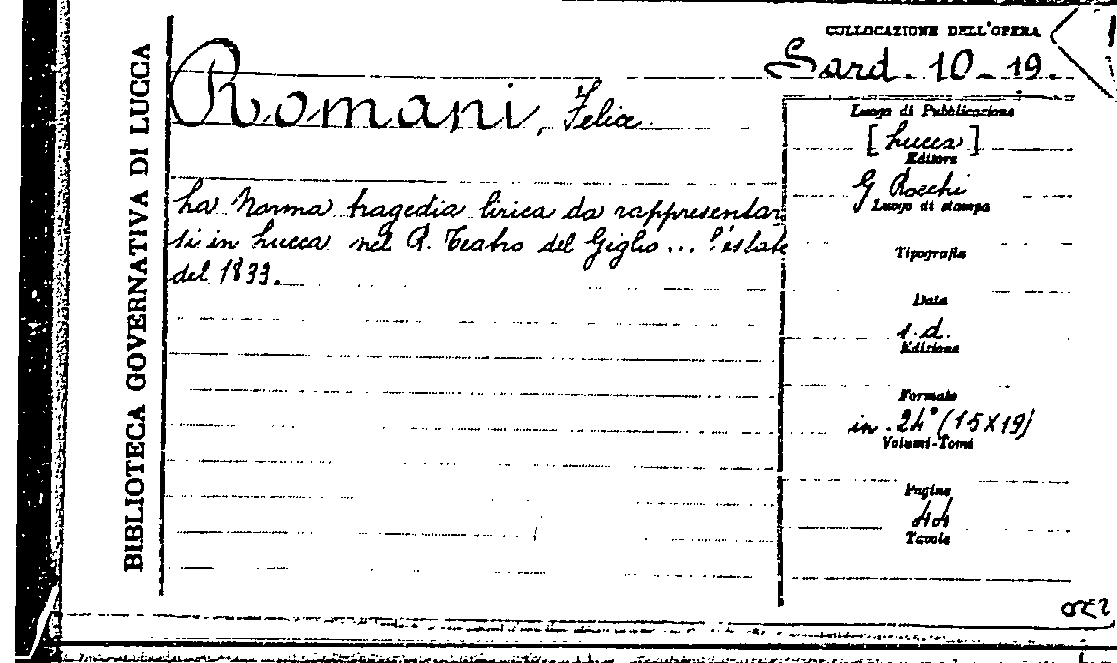 BIBLIOTECA GOVERNATIVA DI LUCCA
COLLOCAZIONE DELL'OPERA
Sard. 10-19.
Romani, Felice
La Norma tragedia lirica da rappresentar
si in Lucca nel R. Teatro del Giglio... l'estate
del 1833.
Luogo di Pubblicazione
[Lucca]
Editore
G Rocchi
Luogo di stampa
Tipografia
Data
s.d.
Edizione
Formato
in.24° (15X19)
Volumi-Tomi
Pagine
44
Tavole